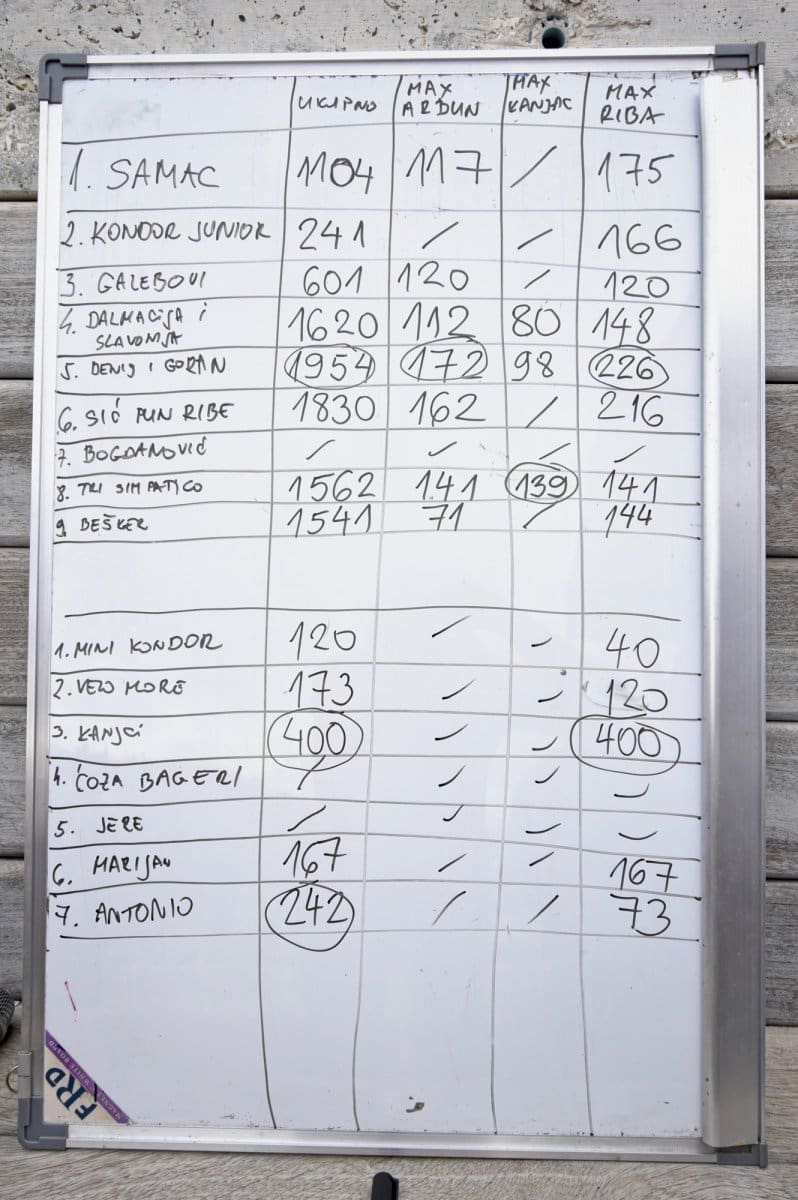 UKUPNO MAX ARDUN MAX KANJAC MAX RIBA
1. SAMAC 1104 117 / / 175
2. KONDOR JUNIOR 241 / / 166
3. GALEBOVI 601 120 / 120
4. DALMACIJA I SLAVONIJA 1620 112 80 148
5. DENIS I GORAN 1954 172 98 226
6. SIĆ PUN RIBE 1830 162 / 216
7. BOGDANOVIĆ / / / /
8. TRI SIMPATICO 1562 141 139 141
9 BEŠKER 1541 71 / 144
1. MINI KONDOR 120 / / 40
2. VELO MORE 173 / / 120
3. KANJCI 400 / / 400
4. ĆOZA BAGERI / / / /
5. JERE / / / /
6. MARIJAN 167 / / 167
7. ANTONIO 242 / / 73
FRD
MAGNETIC WHITE BOARD